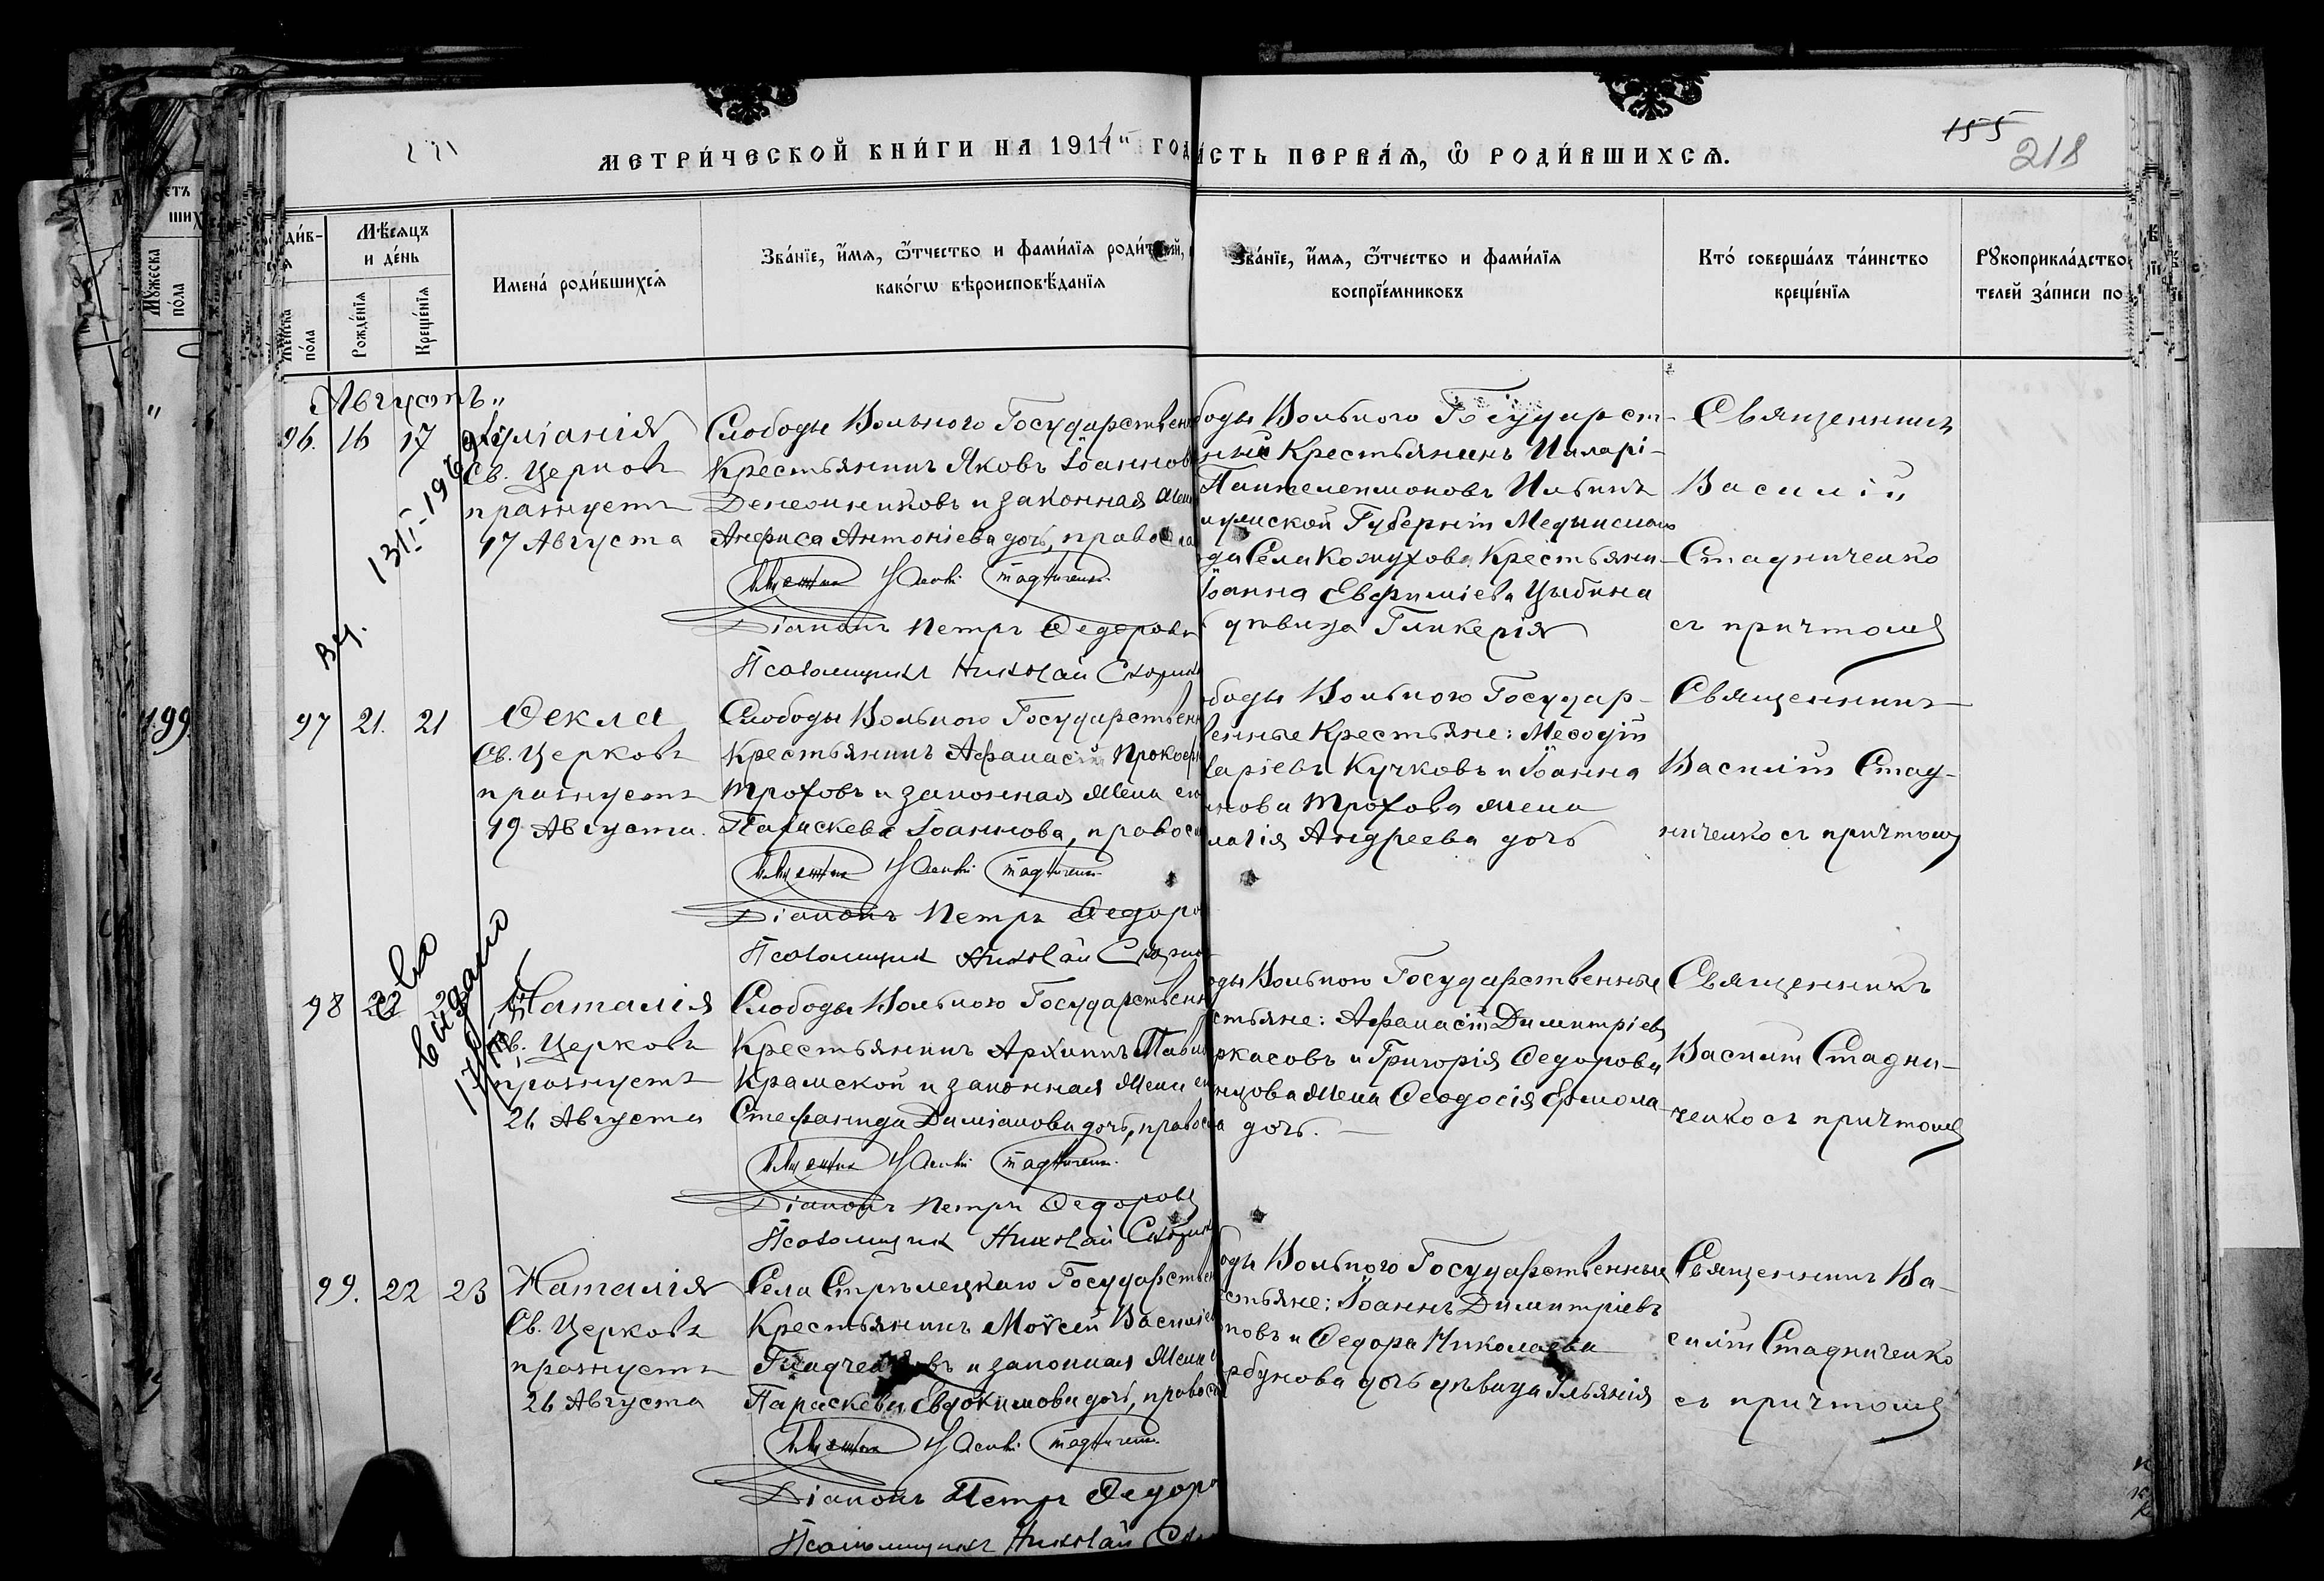 МЕТРИ́ЧЕСКОЙ КНИ́ГИ НА 1914 ГОД
А́СТЬ ПЕРВА́Я, Ѡ РОДИ́ВШИХСЯ.
155
218
Мѣ́сяцъ
и де́нь
Рожде́нїя
Креще́нїя
Же́нска
по́ла
Му́жеска
по́ла
Имена́ роди́вшихся
Зва́нїе, и́мя, ѻ́тчество и фами́лїя роди́телей,
како́гѡ вѣроисповѣ́данїя
Зва́нїе, и́мя, ѻ́тчество и фами́лїя
воспрїе́мниковъ
Кто́ соверша́лъ та́инство
креще́нїя
Рꙋкоприкла́дство
телей за́писи по
Августъ
96. 16 17 Іуліанія
Св. Церковь
празнуетъ
17 Августа
Слободы Вольнаго Государственн
Крестьянинъ Яковъ Іоаннов
и законная жен
Анфиса Антоніева дочь, правосла
Діаконъ Петръ Ѳедоровъ
Псаломщикъ Николай
боды Вольнаго Государст-
ный Крестьянинъ Иларі-
Пантелеимоновъ Ильинъ
Губерніи
да Села Кожухова Крестьяни-
Іоанна Евфиміева Цыбина
дѣвица Гликерія
Священникъ
Василій
Стадниченко
съ причтомъ
97 21. 21 Ѳекла
Св. Церковь
празнуетъ
19 Августа.
Слободы Вольнаго Государственн
Крестьянинъ Афанасій Прокофі
Трофовъ и законная жена ег
Параскева Іоаннова, правосл
Діаконъ Петръ Ѳедоро
Псаломщикъ Николай
боды Вольнаго Государ-
венные Крестьяне: Меѳодій
ларіевъ Кучковъ и Іоанна
нова Трофова жена
Андреева дочь
Священникъ
Василій Стад-
ниченко съ причтомъ
выдано
98 22 Наталія
Св. Церковь
празнуетъ
26 Августа
Слободы Вольнаго Государственн
Крестьянинъ Архипъ Павл
Крамской и законная жена ег
Стефанида Даміанова дочь, правосл
Діаконъ Петръ Ѳедоровъ
Псаломщикъ Николай
оды Вольнаго Государственные
стьяне: Афанасій Димитріевъ
ркасовъ и Григорія Ѳедорова
нцова жена Ѳеодосія Ермола-
а дочь.
Священникъ
Василій Стадни-
ченко съ причтомъ
99. 22 23 Наталія
Св. Церковь
празнуетъ
26 Августа
Села Стрѣлецкаго Государствен
Крестьянинъ Моѵсей Василіев
и законная жена
Параскева Евдокимова дочь, правосл
Діаконъ Петръ Ѳедоро
Псаломщикъ Николай
оды Вольнаго Государственные
стьяне: Іоаннъ Димитріевъ
повъ и Ѳедора Николаева
рбунова дочь дѣвица Ульянія
Священникъ Ва-
силій Стадниченко
съ причтомъ